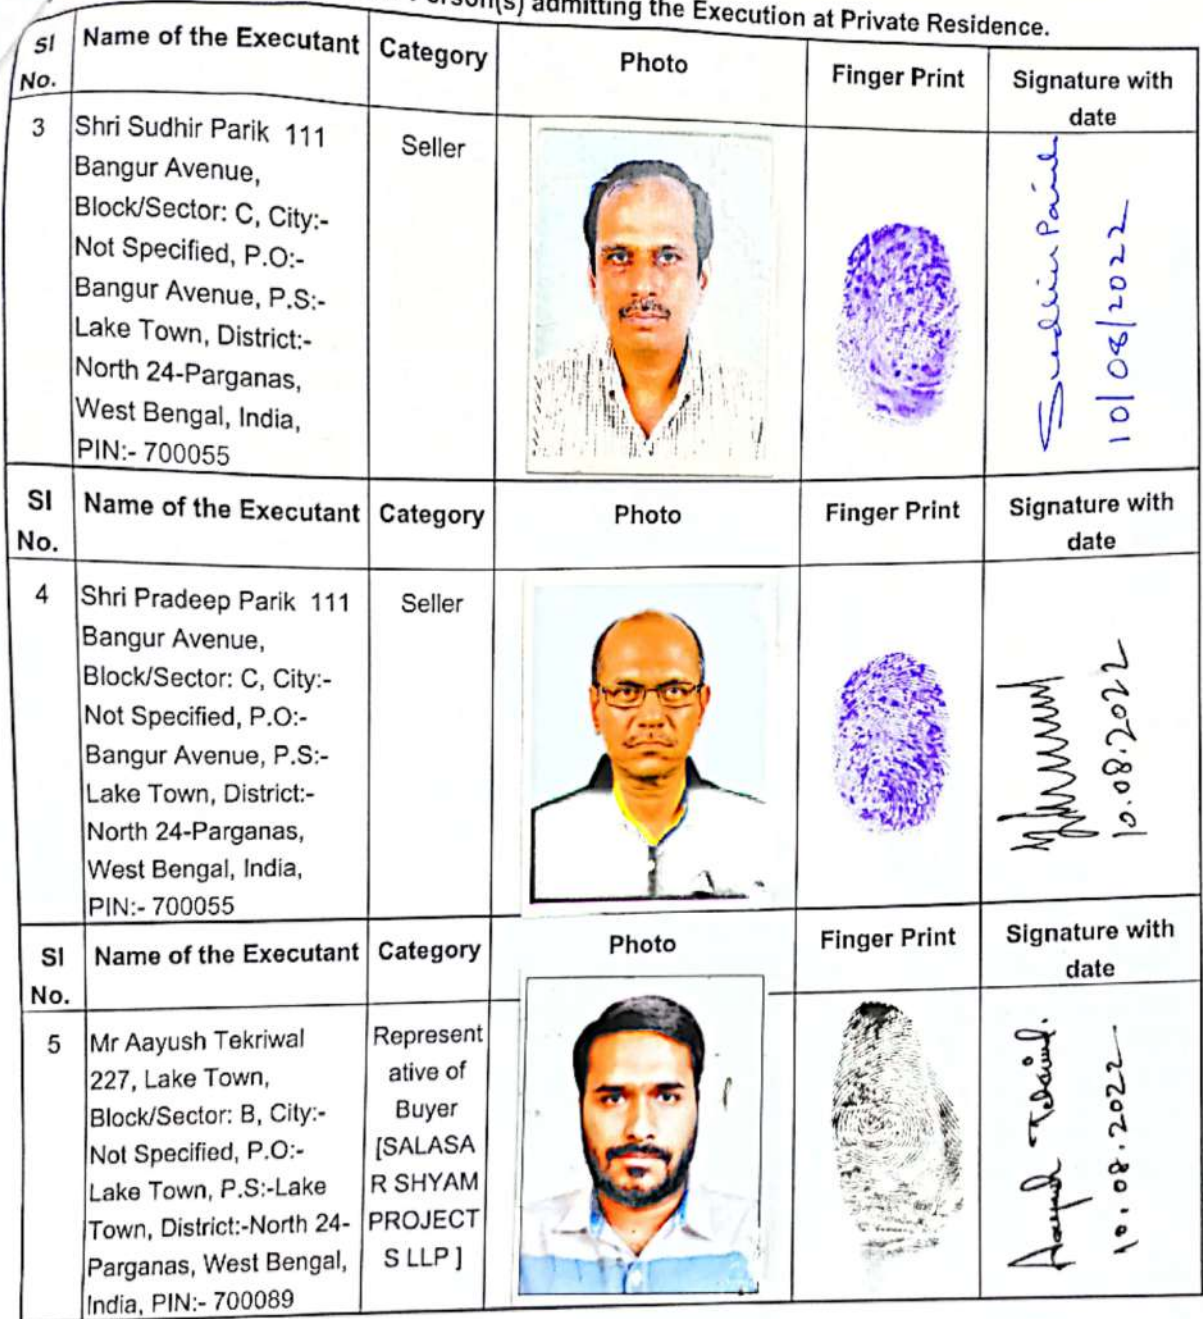 admitting the Execution at Private Residence.
Sl No. Name of the Executant Category Photo Finger Print Signature with date
3 Shri Sudhir Parik 111
Bangur Avenue,
Block/Sector: C, City:-
Not Specified, P.O:-
Bangur Avenue, P.S:-
Lake Town, District:-
North 24-Parganas,
West Bengal, India,
PIN:- 700055
Seller
Sudhir Parik
10/08/2022
Sl No. Name of the Executant Category Photo Finger Print Signature with date
4 Shri Pradeep Parik 111
Bangur Avenue,
Block/Sector: C, City:-
Not Specified, P.O:-
Bangur Avenue, P.S:-
Lake Town, District:-
North 24-Parganas,
West Bengal, India,
PIN:- 700055
Seller
10.08.2022
Sl No. Name of the Executant Category Photo Finger Print Signature with date
5 Mr Aayush Tekriwal
227, Lake Town,
Block/Sector: B, City:-
Not Specified, P.O:-
Lake Town, P.S:-Lake
Town, District:-North 24-
Parganas, West Bengal,
India, PIN:- 700089
Represent
ative of
Buyer
[SALASA
R SHYAM
PROJECT
S LLP ]
Aayush Tekriwal
10.08.2022